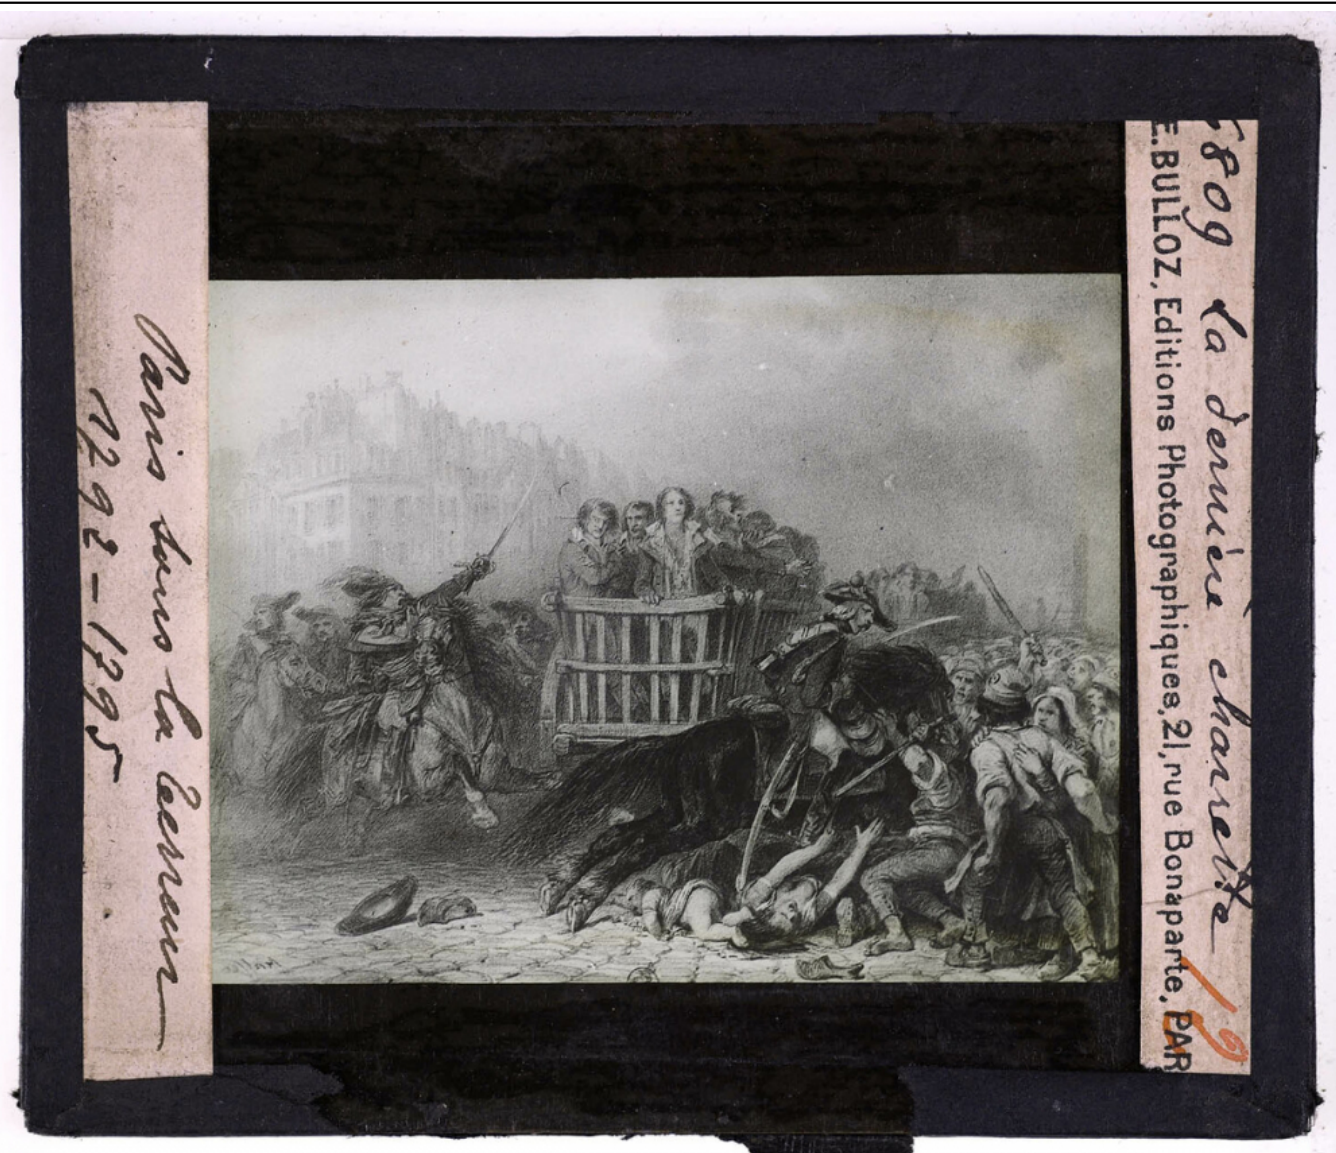 Paris sous la Terreur
1792-1795
6809 La dernière charrette
E. BULLOZ, Editions Photographiques, 21, rue Bonaparte, PAR
19